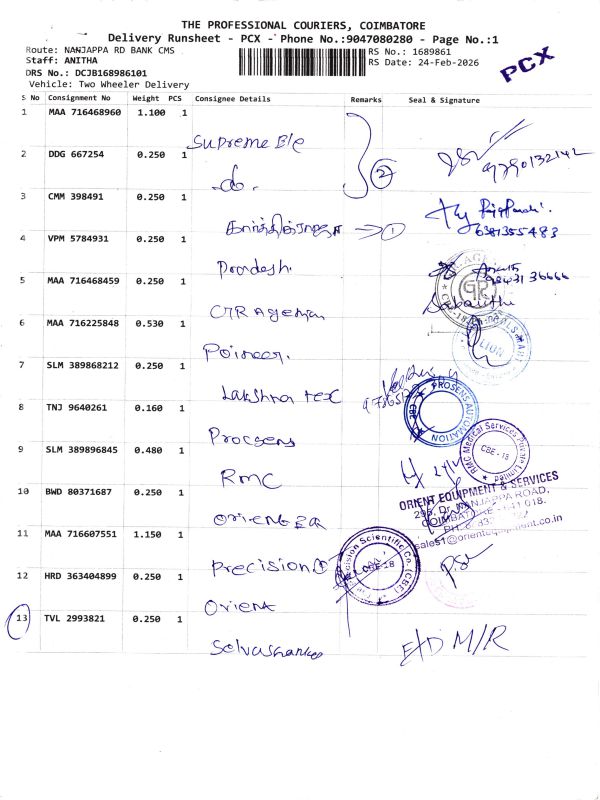 THE PROFESSIONAL COURIERS, COIMBATORE
Delivery Runsheet - PCX - Phone No.:9047080280 - Page No.:1
Route: NANJAPPA RD BANK CMS
RS No.: 1689861
Staff: ANITHA
RS Date: 24-Feb-2026
DRS No.: DCJB168986101
Vehicle: Two Wheeler Delivery
PCX
S No Consignment No Weight PCS Consignee Details Remarks Seal & Signature
1 MAA 716468960 1.100 1
Supreme Ele
2 DDG 667254 0.250 1
do. 2
9790132142
3 CMM 398491 0.250 1
1
6381355483
4 VPM 5784931 0.250 1
Pradesh
98431 36666
5 MAA 716468459 0.250 1
CTR Agencies
6 MAA 716225848 0.530 1
LION
Poineer.
7 SLM 389868212 0.250 1
Lakshna tex
8 TNJ 9640261 0.160 1
PROSENS AUTOMATION
CBE
Procsens
9 SLM 389896845 0.480 1
RMC Medical Services Private Limited
CBE - 18
RMC
10 BWD 80371687 0.250 1
ORIENT EQUIPMENT & SERVICES
295, Dr. NANJAPPA ROAD,
COIMBATORE - 641 018.
sales1@orientequipment.co.in
11 MAA 716607551 1.150 1
Precision
Precision Scientific Co. (CBE)
CBE-18
12 HRD 363404899 0.250 1
Orient
13 TVL 2993821 0.250 1
Selvashankar
E/D M/R